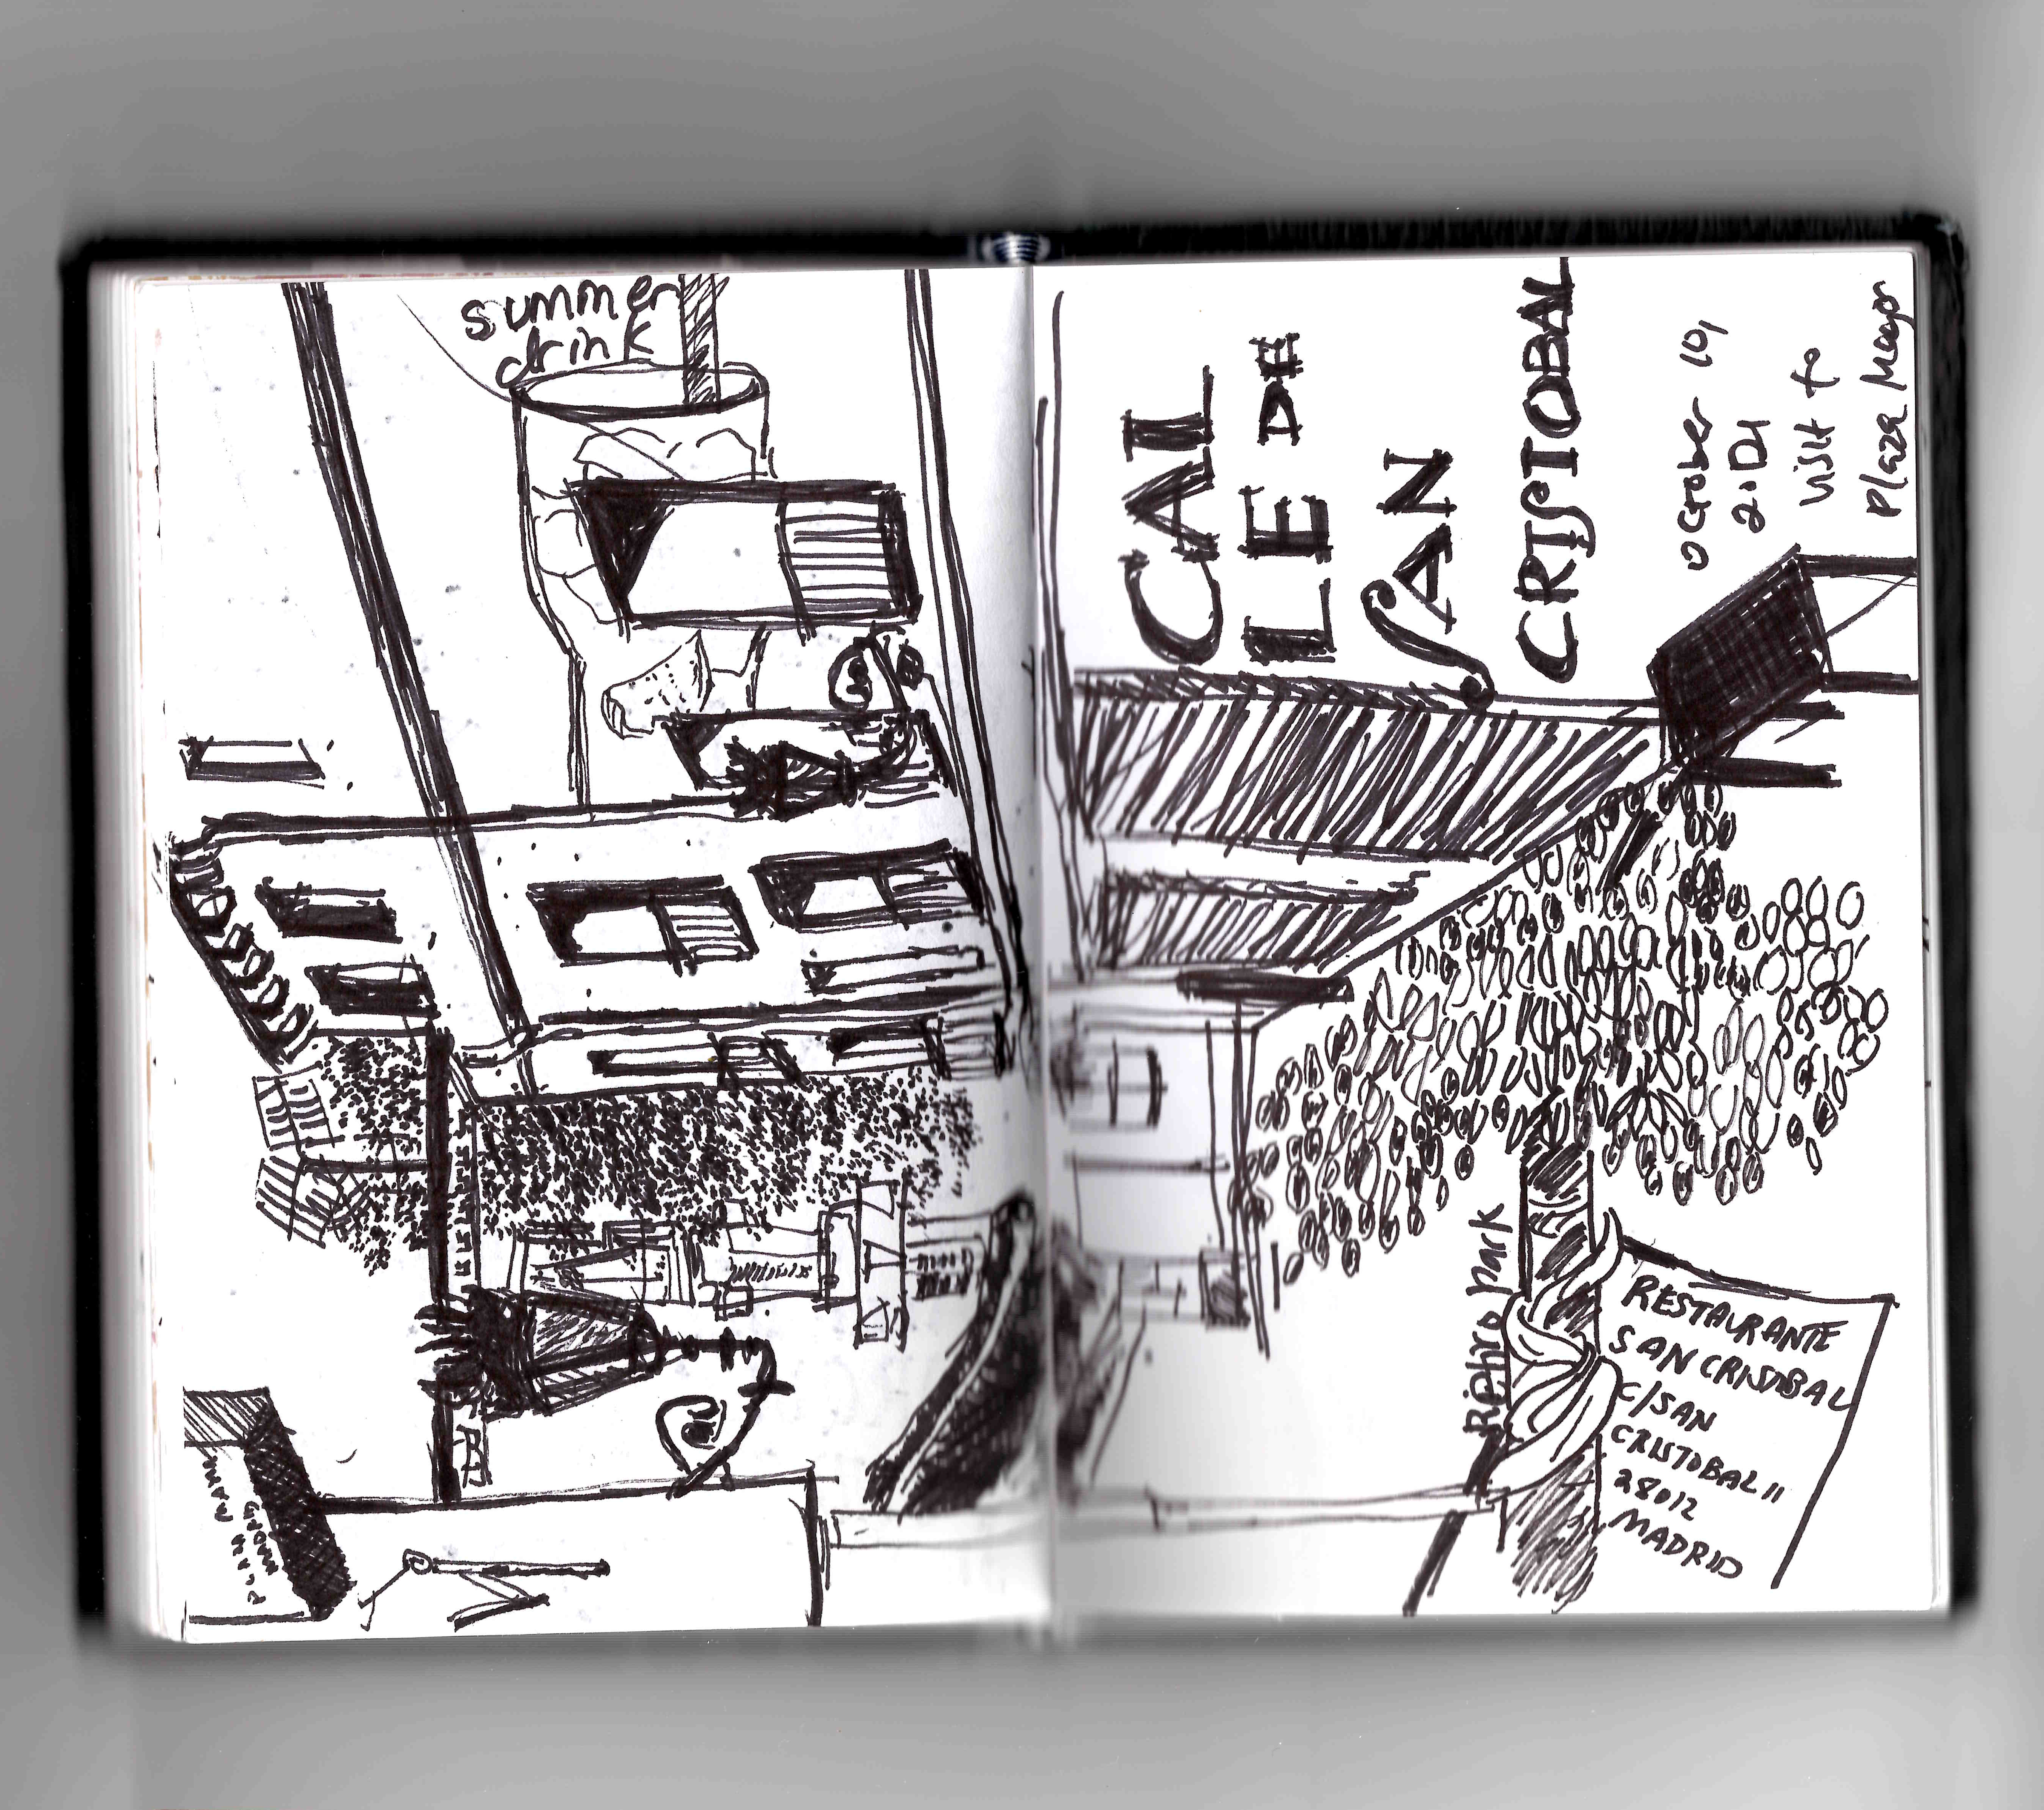 summer
drink
CAL
LE DE
SAN
CRISTOBAL
October 10,
2021
visit to
Plaza Mayor
park
RESTAURANTE
SAN CRISTOBAL
C/SAN
CRISTOBAL 11
28012
MADRID